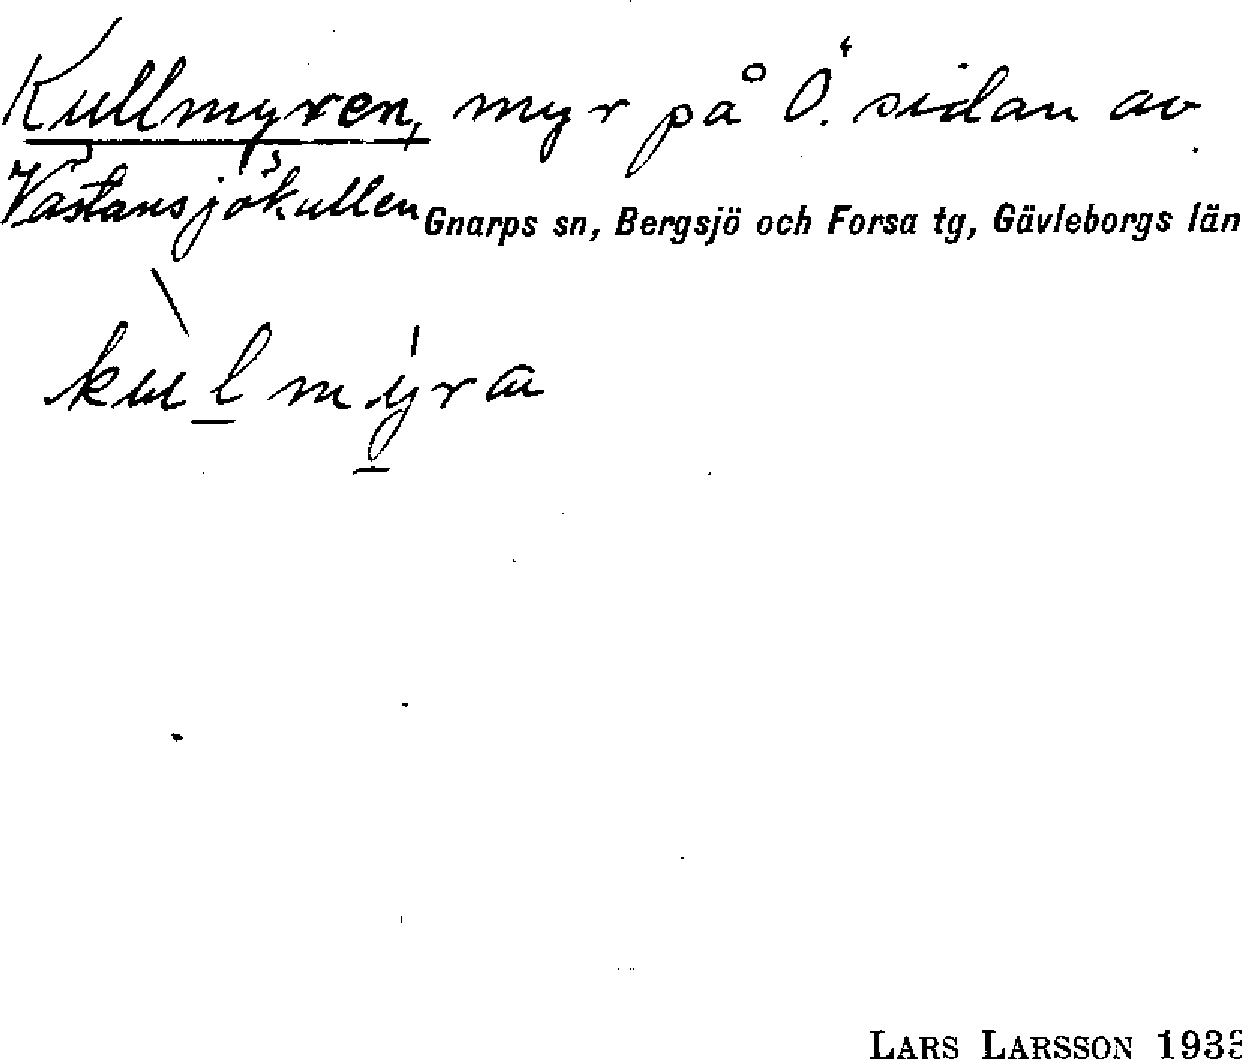 Kullmyren, myr på Ö. sidan av
Västansjökullen Gnarps sn, Bergsjö och Forsa tg, Gävleborgs län
kulmyra
LARS LARSSON